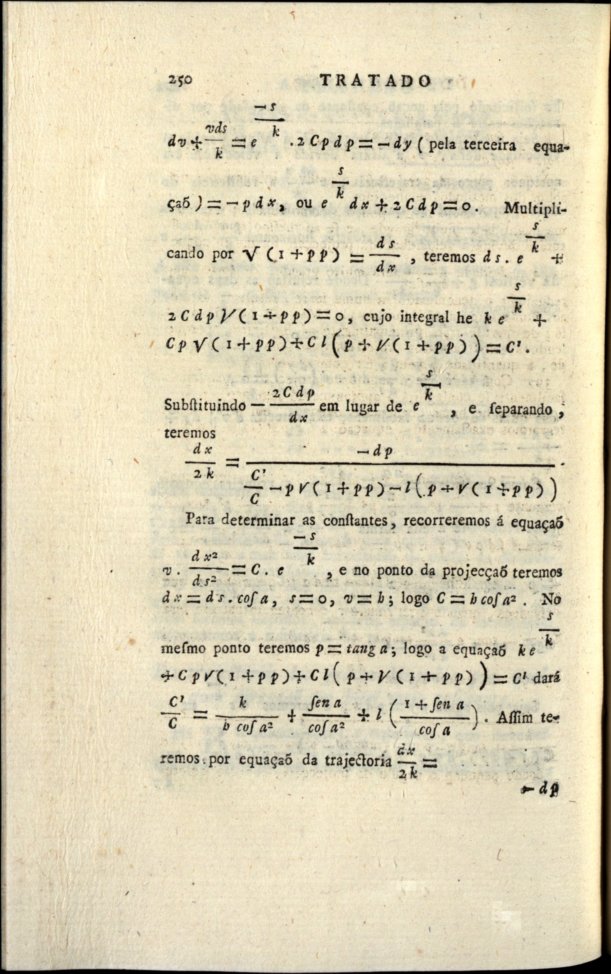 250 TRATADO
dv + vds/k = e^(−s/k) . 2 C p d p = − dy ( pela terceira equa-
çaõ ) = − p d x, ou e^(s/k) d x + 2 C d p = 0. Multipli-
cando por √ (1 + p p) = d s/d x , teremos d s. e^(s/k) +
2 C d p √(1 + p p) = 0, cujo integral he k e^(s/k) +
C p √(1 + p p) + C l ( p + √(1 + p p) ) = C'.
Subſtituindo − 2 C d p/d x em lugar de e^(s/k) , e ſeparando ,
teremos
d x/2 k = − d p/(C'/C − p √(1 + p p) − l ( p + √(1 + p p) )) .
Para determinar as conſtantes, recorreremos á equaçaõ
v . d x²/d s² = C . e^(−s/k) , e no ponto da projecçaõ teremos
d x = d s . coſ a, s = 0, v = b; logo C = b coſ a² . No
meſmo ponto teremos p = tang a; logo a equaçaõ k e^(s/k)
+ C p √(1 + p p) + C l ( p + √(1 + p p) ) = C' dará
C'/C = k/b coſ a² + ſen a/coſ a² + l ( 1 + ſen a/coſ a ) . Aſſim te-
remos por equaçaõ da trajectoria d x/2 k =
− dp